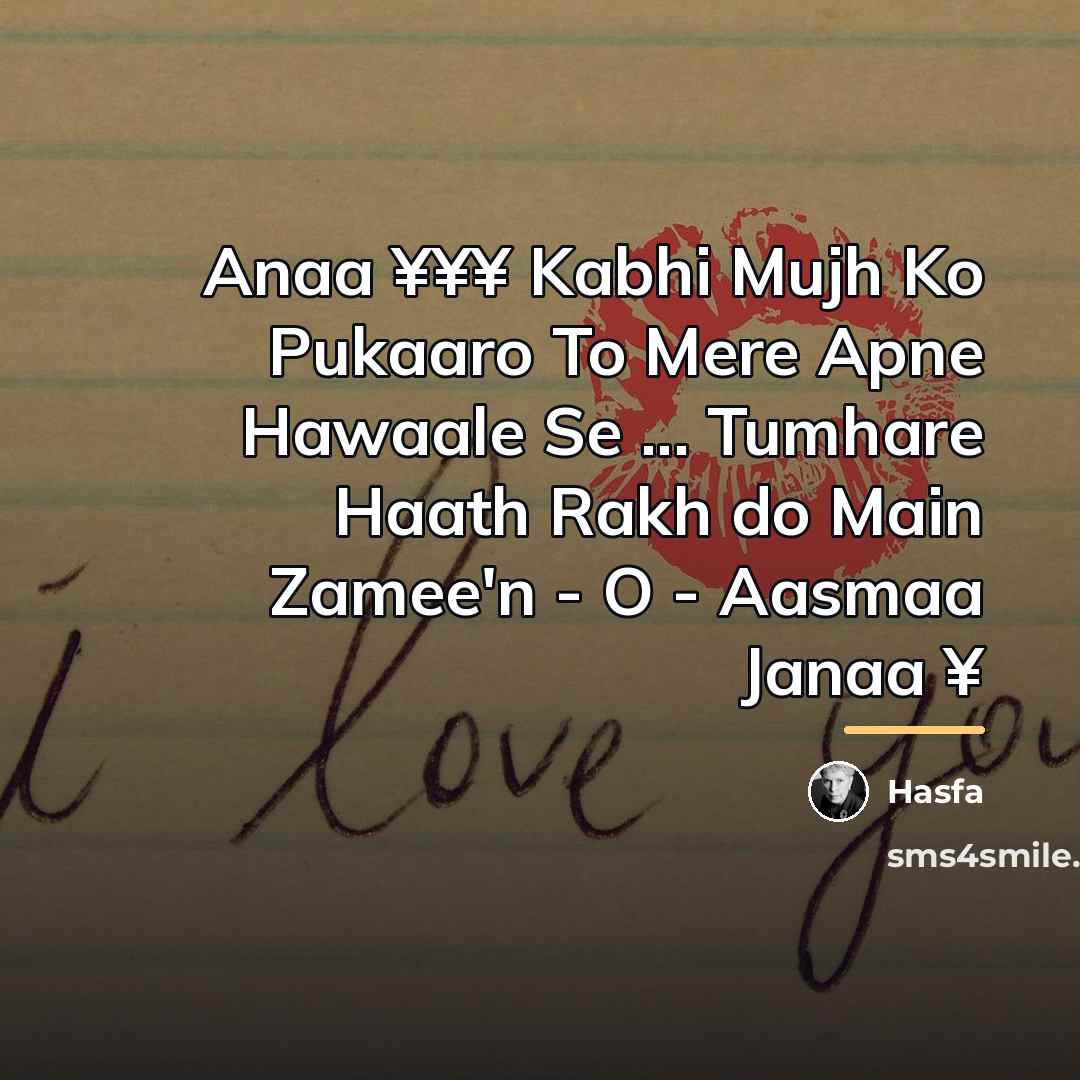 Anaa ¥¥¥ Kabhi Mujh Ko
Pukaaro To Mere Apne
Hawaale Se ... Tumhare
Haath Rakh do Main
Zamee'n - O - Aasmaa
Janaa ¥
i love you
Hasfa
sms4smile.